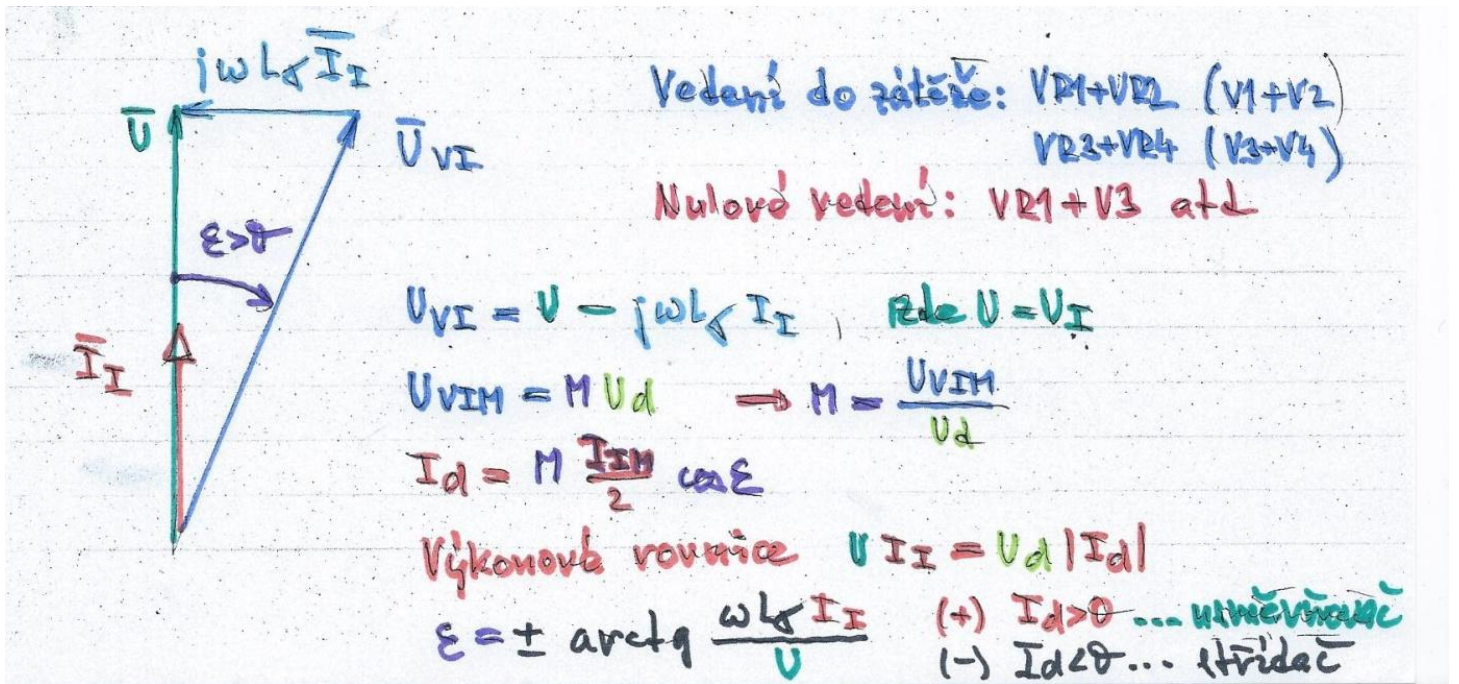 jωLσ I̅I
U̅
U̅VI
ε>0
I̅I
Vedení do zátěže: VR1+VR2 (V1+V2)
VR3+VR4 (V3+V4)
Nulové vedení: VR1+V3 atd
UVI = U - jωLσ II , zde U = UI
UVIM = M Ud ⇒ M = UVIM / Ud
Id = M IIM / 2 cos ε
Výkonová rovnice U II = Ud |Id|
ε = ± arctg ωLσ II / U (+) Id>0 ... usměrňovač
(-) Id<0 ... střídač